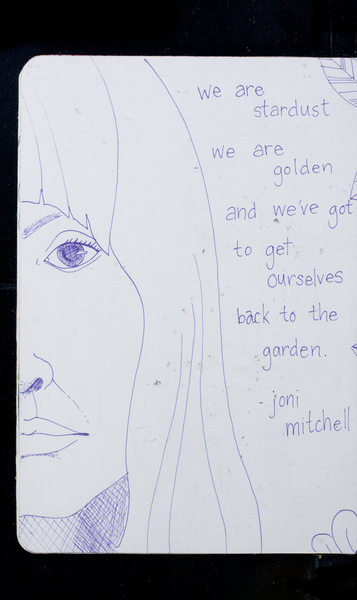 we are
stardust
we are
golden
and we've got
to get
ourselves
back to the
garden.
- joni
mitchell